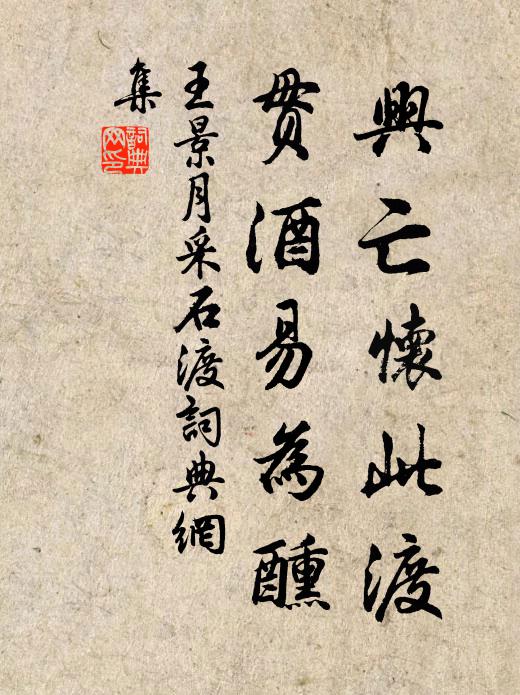 興亡懷此渡
貰酒易為醺
王景月采石渡詞典網
集
詞典網印